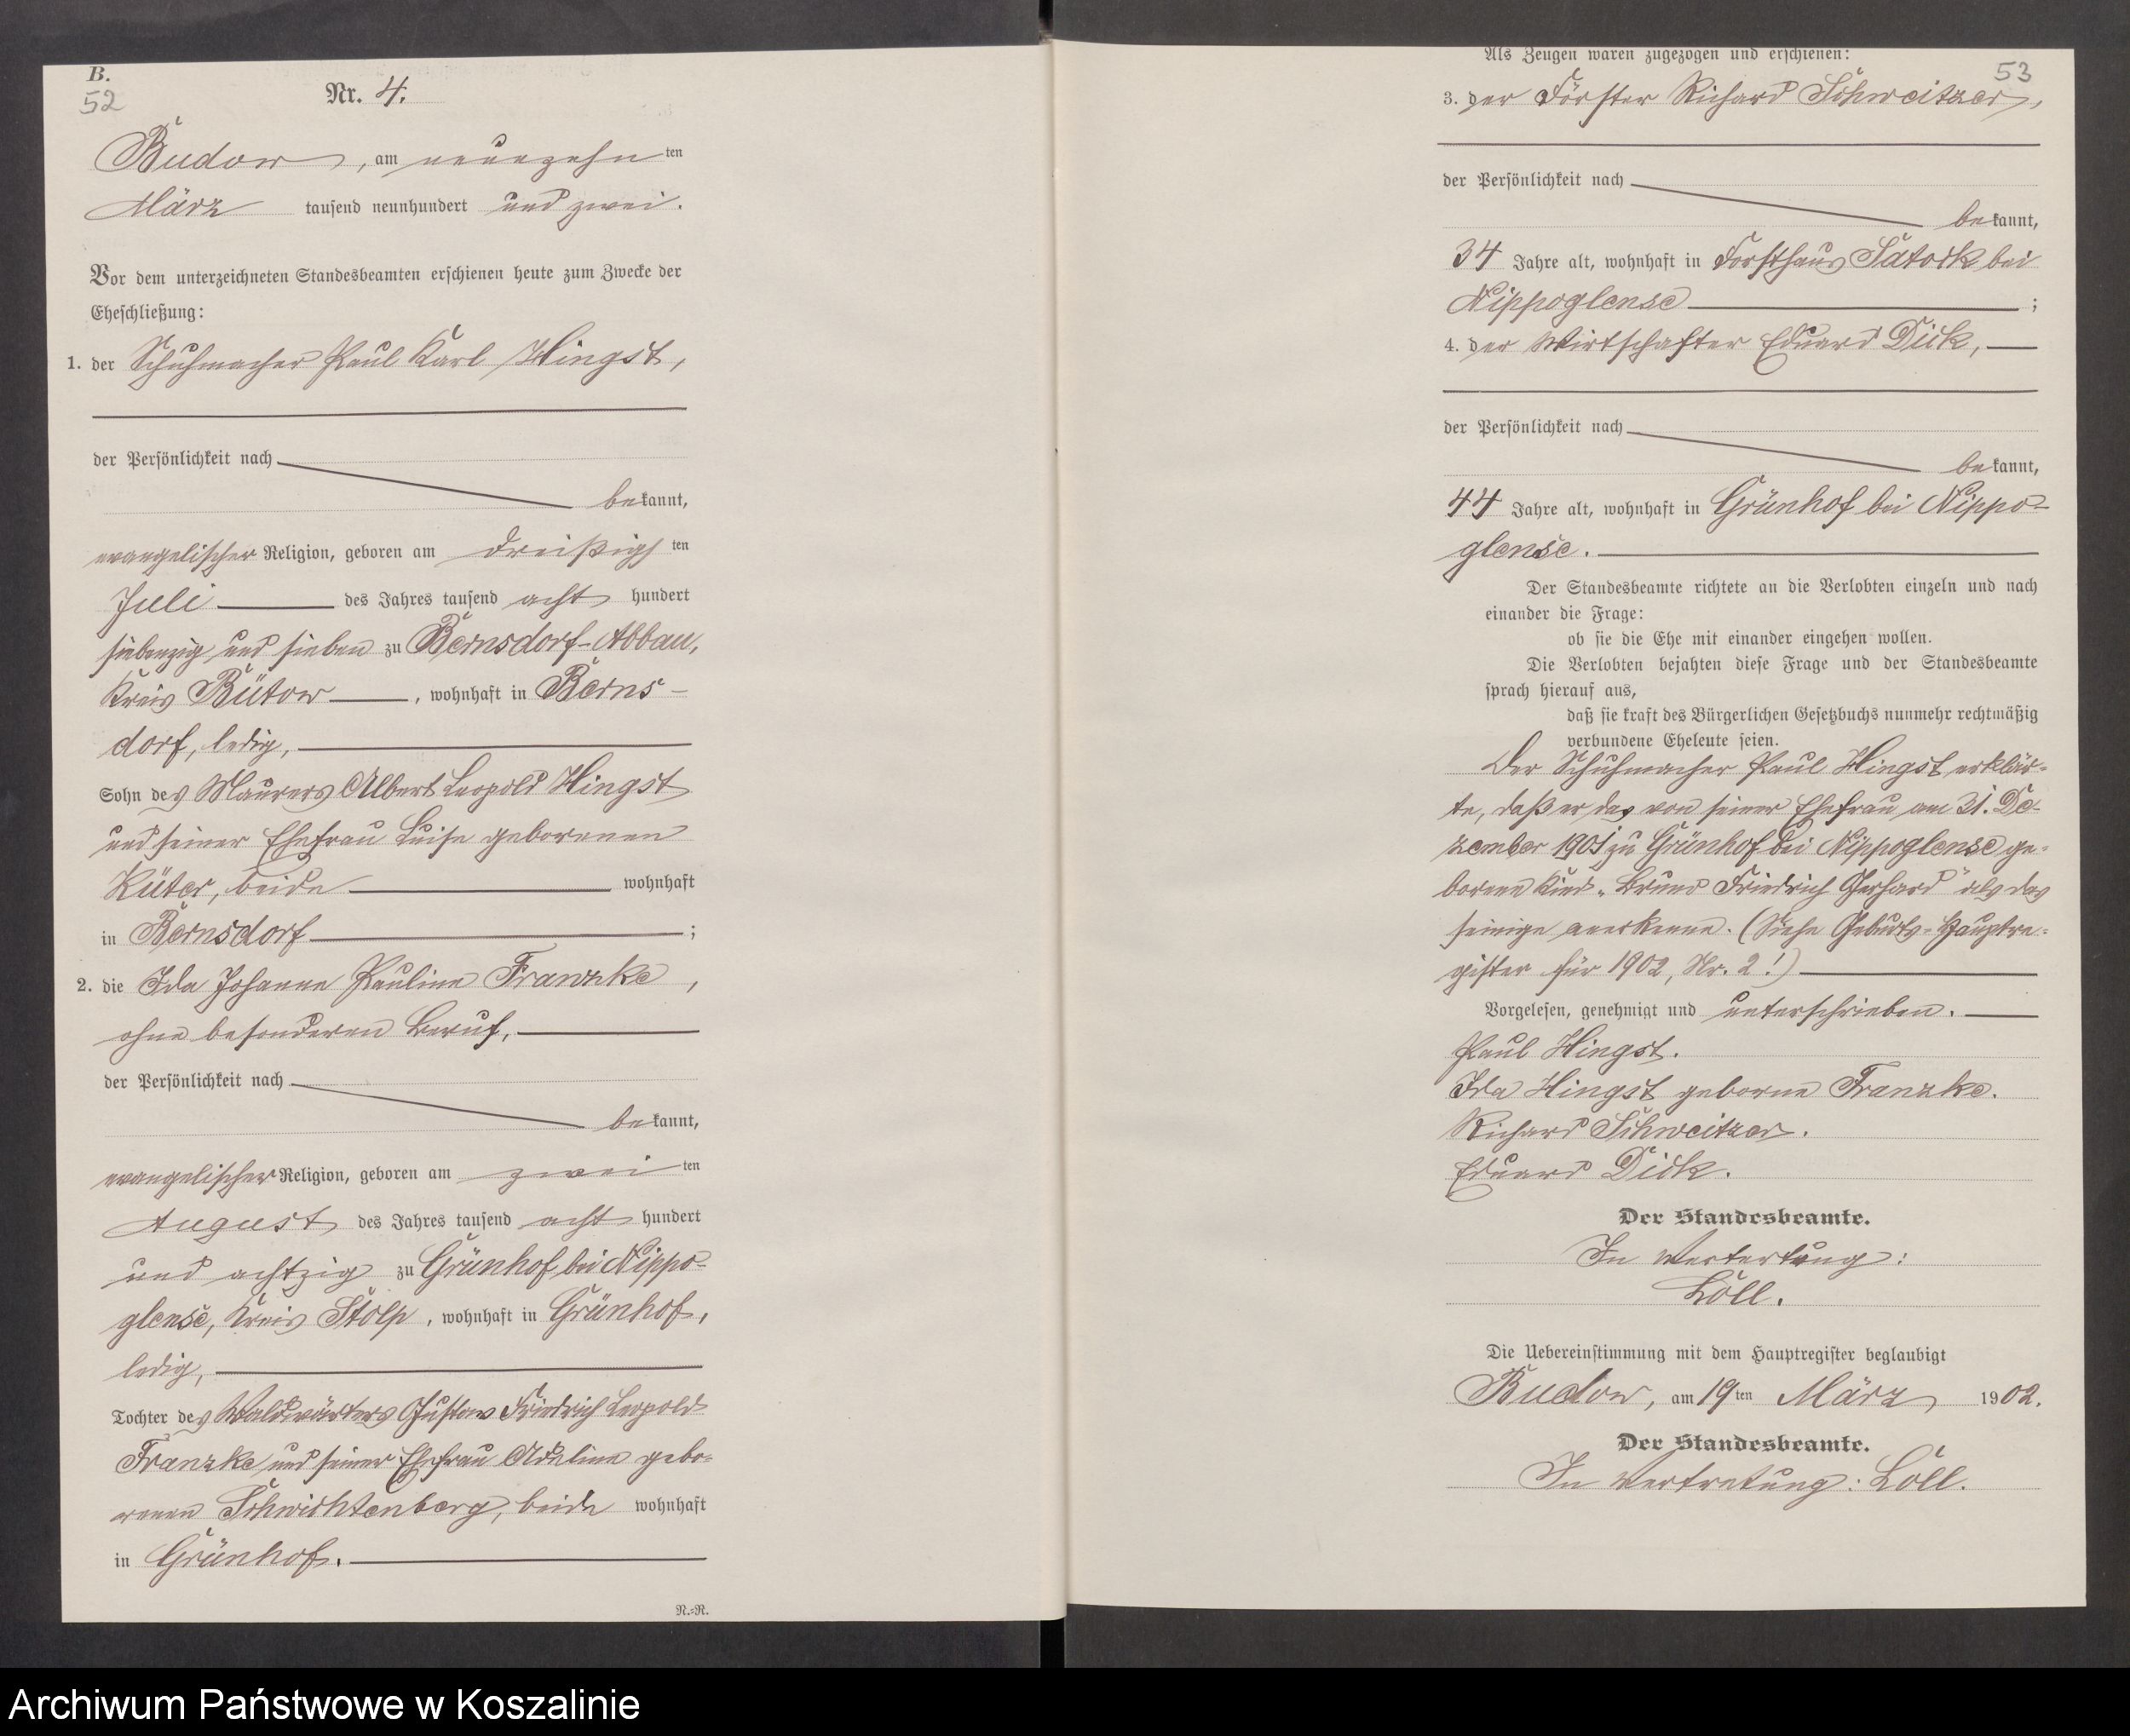 B.
52
Nr. 4.
Budow, am neunzehnten
März tausend neunhundert und zwei.
Vor dem unterzeichneten Standesbeamten erschienen heute zum Zwecke der
Eheschließung:
1. der Schuhmacher Paul Karl Hingst,
der Persönlichkeit nach
bekannt,
evangelischer Religion, geboren am dreißigsten
Juli des Jahres tausend acht hundert
siebenzig und sieben zu Bernsdorf-Abbau,
Kreis Bütow, wohnhaft in Berns-
dorf, ledig,
Sohn des Maurers Albert Leopold Hingst
und seiner Ehefrau Luise geborenen
Küter, beide wohnhaft
in Bernsdorf;
2. die Ida Johanne Pauline Franzke,
ohne besonderen Beruf,
der Persönlichkeit nach
bekannt,
evangelischer Religion, geboren am zweiten
August des Jahres tausend acht hundert
und achtzig zu Grünhof bei Nippo-
glense, Kreis Stolp, wohnhaft in Grünhof,
ledig,
Tochter des Waldwärters Gustav Friedrich Leopold
Franzke und seiner Ehefrau Adeline gebo-
renen Schwichtenberg, beide wohnhaft
in Grünhof.
N.-R.
Als Zeugen waren zugezogen und erschienen:
53
3. der Förster Richard Schweitzer,
der Persönlichkeit nach
bekannt,
34 Jahre alt, wohnhaft in Forsthaus bei
Nippoglense;
4. der Wirtschafter Eduard Dick,
der Persönlichkeit nach
bekannt,
44 Jahre alt, wohnhaft in Grünhof bei Nippo-
glense.
Der Standesbeamte richtete an die Verlobten einzeln und nach
einander die Frage:
ob sie die Ehe mit einander eingehen wollen.
Die Verlobten bejahten diese Frage und der Standesbeamte
sprach hierauf aus,
daß sie kraft des Bürgerlichen Gesetzbuchs nunmehr rechtmäßig
verbundene Eheleute seien.
Der Schuhmacher Paul Hingst erklär-
te, daß er das von seiner Ehefrau am 31. De-
zember 1901 zu Grünhof bei Nippoglense ge-
borene Kind „Bruno Friedrich Gerhard" als das
seinige anerkenne. (Siehe Geburts-Hauptre-
gister für 1902, Nr. 2!)
Vorgelesen, genehmigt und unterschrieben.
Paul Hingst.
Ida Hingst geborne Franzke.
Richard Schweitzer.
Eduard Dick.
Der Standesbeamte.
In Vertretung:
Löll.
Die Uebereinstimmung mit dem Hauptregister beglaubigt
Budow, am 19ten März 1902.
Der Standesbeamte.
In Vertretung: Löll.
Archiwum Państwowe w Koszalinie